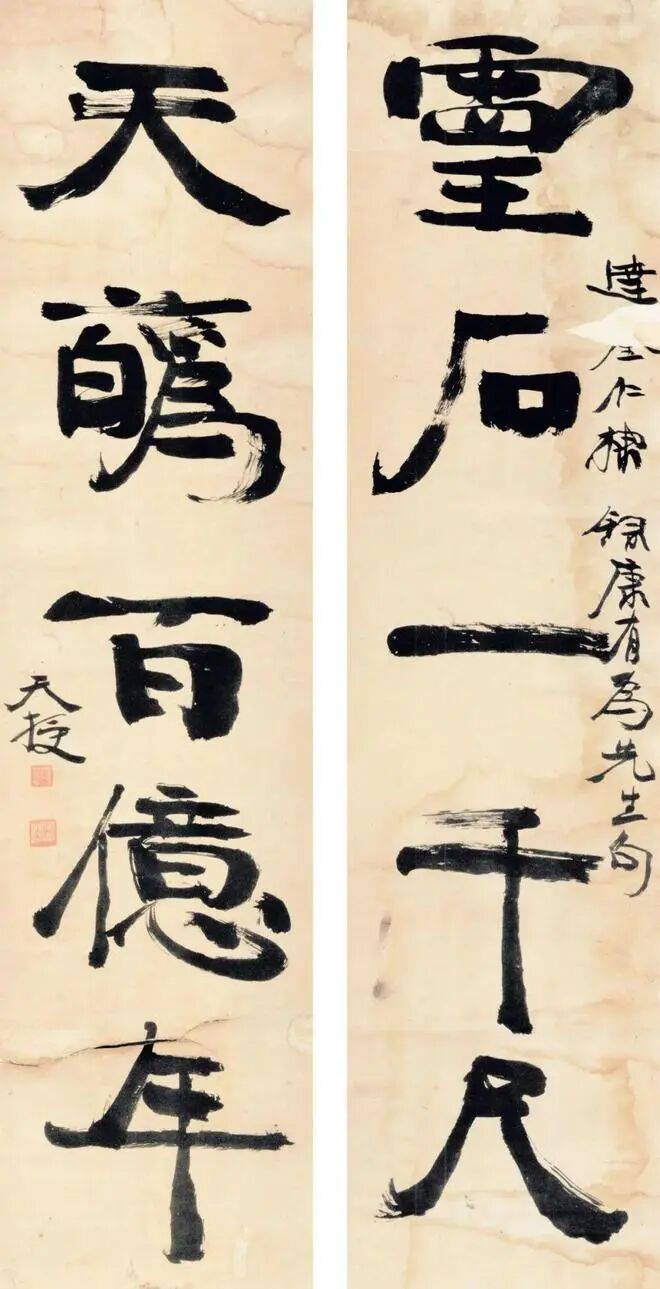 靈石一千尺
達仁棣 録康有為先生句
天百億年
天授